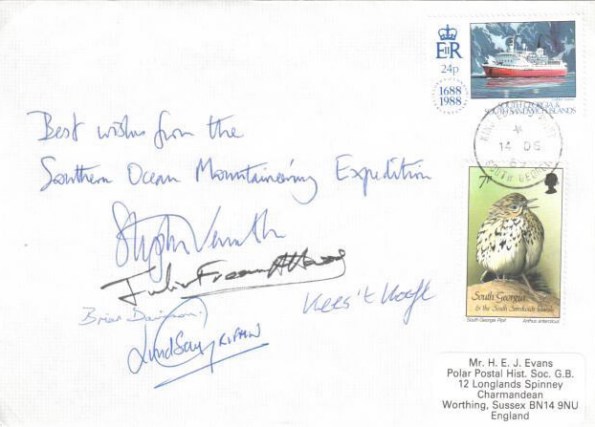 EIIR
24p
1688
1988
SOUTH GEORGIA &
SOUTH SANDWICH ISLANDS
14 DE
Best wishes from the
Southern Ocean Mountaineering Expedition
Stephen Venables
Julian Freeman-Attwood
Kees 't Hooft
Brian Davison
Lindsay Griffin
7p
South Georgia
& the South Sandwich Islands
South Georgia Pipit Anthus antarcticus
Mr. H. E. J. Evans
Polar Postal Hist. Soc. G.B.
12 Longlands Spinney
Charmandean
Worthing, Sussex BN14 9NU
England